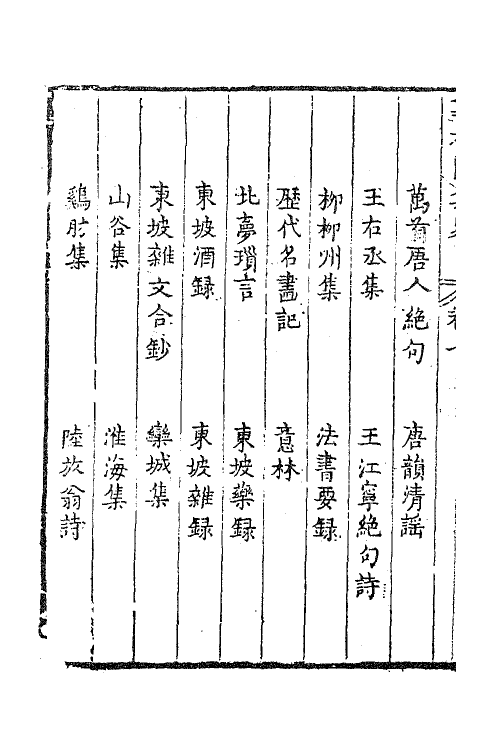 萬首唐人絕句 唐韻清謡
王右丞集 王江寧絕句詩
柳柳州集 法書要録
歷代名畫記 意林
北夢瑣言 東坡樂録
東坡酒録 東坡雜録
東坡雜文合鈔 欒城集
山谷集 淮海集
鷄肋集 陸放翁詩